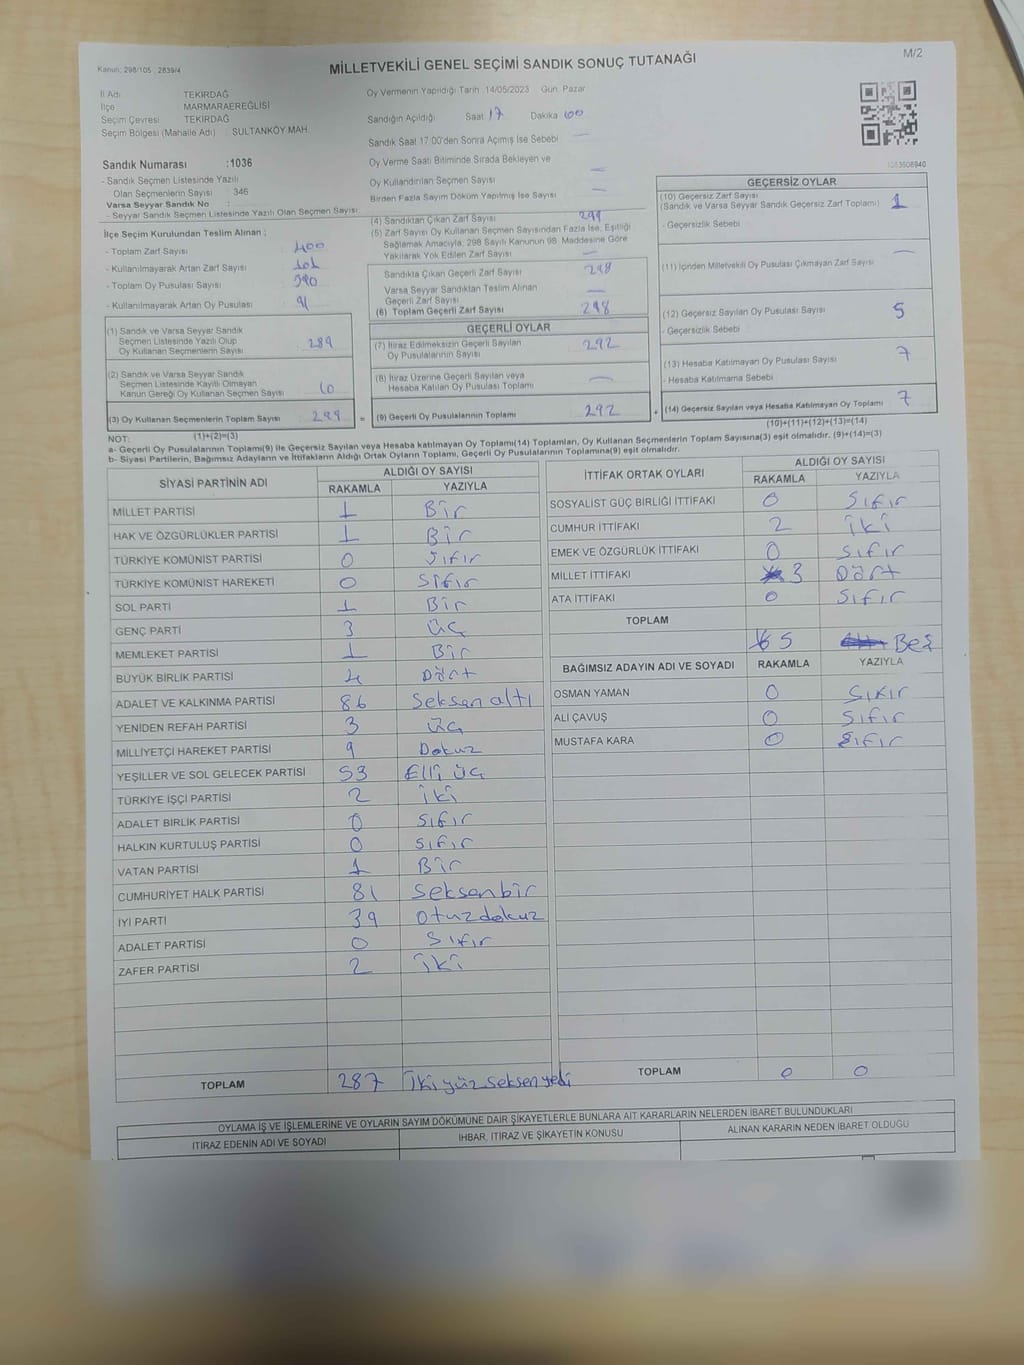 Kanun; 298/105 , 2839/4
MİLLETVEKİLİ GENEL SEÇİMİ SANDIK SONUÇ TUTANAĞI
M/2
İl Adı TEKİRDAĞ
İlçe MARMARAEREĞLİSİ
Seçim Çevresi TEKİRDAĞ
Seçim Bölgesi (Mahalle Adı) : SULTANKÖY MAH.
Sandık Numarası :1036
- Sandık Seçmen Listesinde Yazılı
Olan Seçmenlerin Sayısı : 346
Varsa Seyyar Sandık No :
- Seyyar Sandık Seçmen Listesinde Yazılı Olan Seçmen Sayısı:
İlçe Seçim Kurulundan Teslim Alınan ;
- Toplam Zarf Sayısı 400
- Kullanılmayarak Artan Zarf Sayısı 101
- Toplam Oy Pusulası Sayısı 390
- Kullanılmayarak Artan Oy Pusulası 91
(1) Sandık ve Varsa Seyyar Sandık
Seçmen Listesinde Yazılı Olup
Oy Kullanan Seçmenlerin Sayısı 289
(2) Sandık ve Varsa Seyyar Sandık
Seçmen Listesinde Kayıtlı Olmayan
Kanun Gereği Oy Kullanan Seçmen Sayısı 10
(3) Oy Kullanan Seçmenlerin Toplam Sayısı 299
(1)+(2)=(3)
Oy Vermenin Yapıldığı Tarih :14/05/2023 Gün: Pazar
Sandığın Açıldığı Saat 17 Dakika 00
Sandık Saat 17:00'den Sonra Açımış İse Sebebi —
Oy Verme Saati Bitiminde Sırada Bekleyen ve
Oy Kullandırılan Seçmen Sayısı —
Birden Fazla Sayım Döküm Yapılmış İse Sayısı —
(4) Sandıktan Çıkan Zarf Sayısı 299
(5) Zarf Sayısı Oy Kullanan Seçmen Sayısından Fazla İse, Eşitliği
Sağlamak Amacıyla, 298 Sayılı Kanunun 98. Maddesine Göre
Yakılarak Yok Edilen Zarf Sayısı —
Sandıkta Çıkan Geçerli Zarf Sayısı 298
Varsa Seyyar Sandıktan Teslim Alınan
Geçerli Zarf Sayısı —
(6) Toplam Geçerli Zarf Sayısı 298
GEÇERLİ OYLAR
(7) İtiraz Edilmeksizin Geçerli Sayılan
Oy Pusulalarının Sayısı 292
(8) İtiraz Üzerine Geçerli Sayılan veya
Hesaba Katılan Oy Pusulası Toplamı —
= (9) Geçerli Oy Pusulalarının Toplamı 292 +
1083608940
GEÇERSİZ OYLAR
(10) Geçersiz Zarf Sayısı
(Sandık ve Varsa Seyyar Sandık Geçersiz Zarf Toplamı) 1
- Geçersizlik Sebebi
(11) İçinden Milletvekili Oy Pusulası Çıkmayan Zarf Sayısı —
(12) Geçersiz Sayılan Oy Pusulası Sayısı 5
- Geçersizlik Sebebi
(13) Hesaba Katılmayan Oy Pusulası Sayısı 7
- Hesaba Katılmama Sebebi
(14) Geçersiz Sayılan veya Hesaba Katılmayan Oy Toplamı 7
(10)+(11)+(12)+(13)=(14)
NOT:
a- Geçerli Oy Pusulalarının Toplamı(9) ile Geçersiz Sayılan veya Hesaba katılmayan Oy Toplamı(14) Toplamları, Oy Kullanan Seçmenlerin Toplam Sayısına(3) eşit olmalıdır. (9)+(14)=(3)
b- Siyasi Partilerin, Bağımsız Adayların ve İttifakların Aldığı Ortak Oyların Toplamı, Geçerli Oy Pusulalarının Toplamına(9) eşit olmalıdır.
SİYASİ PARTİNİN ADI ALDIĞI OY SAYISI
RAKAMLA YAZIYLA
MİLLET PARTİSİ 1 Bir
HAK VE ÖZGÜRLÜKLER PARTİSİ 1 Bir
TÜRKİYE KOMÜNİST PARTİSİ 0 Sıfır
TÜRKİYE KOMÜNİST HAREKETİ 0 Sıfır
SOL PARTİ 1 Bir
GENÇ PARTİ 3 Üç
MEMLEKET PARTİSİ 1 Bir
BÜYÜK BİRLİK PARTİSİ 4 Dört
ADALET VE KALKINMA PARTİSİ 86 Seksen altı
YENİDEN REFAH PARTİSİ 3 Üç
MİLLİYETÇİ HAREKET PARTİSİ 9 Dokuz
YEŞİLLER VE SOL GELECEK PARTİSİ 53 Elli üç
TÜRKİYE İŞÇİ PARTİSİ 2 iki
ADALET BİRLİK PARTİSİ 0 Sıfır
HALKIN KURTULUŞ PARTİSİ 0 Sıfır
VATAN PARTİSİ 1 Bir
CUMHURİYET HALK PARTİSİ 81 Seksen bir
İYİ PARTİ 39 Otuz dokuz
ADALET PARTİSİ 0 Sıfır
ZAFER PARTİSİ 2 iki
TOPLAM 287 İki yüz seksen yedi
İTTİFAK ORTAK OYLARI ALDIĞI OY SAYISI
RAKAMLA YAZIYLA
SOSYALİST GÜÇ BİRLİĞİ İTTİFAKI 0 Sıfır
CUMHUR İTTİFAKI 2 iki
EMEK VE ÖZGÜRLÜK İTTİFAKI 0 Sıfır
MİLLET İTTİFAKI 3 Dört
ATA İTTİFAKI 0 Sıfır
TOPLAM
5 Beş
BAĞIMSIZ ADAYIN ADI VE SOYADI RAKAMLA YAZIYLA
OSMAN YAMAN 0 Sıfır
ALİ ÇAVUŞ 0 Sıfır
MUSTAFA KARA 0 Sıfır
TOPLAM 0 0
OYLAMA İŞ VE İŞLEMLERİNE VE OYLARIN SAYIM DÖKÜMÜNE DAİR ŞİKAYETLERLE BUNLARA AİT KARARLARIN NELERDEN İBARET BULUNDUKLARI
İTİRAZ EDENİN ADI VE SOYADI İHBAR, İTİRAZ VE ŞİKAYETİN KONUSU ALINAN KARARIN NEDEN İBARET OLDUĞU